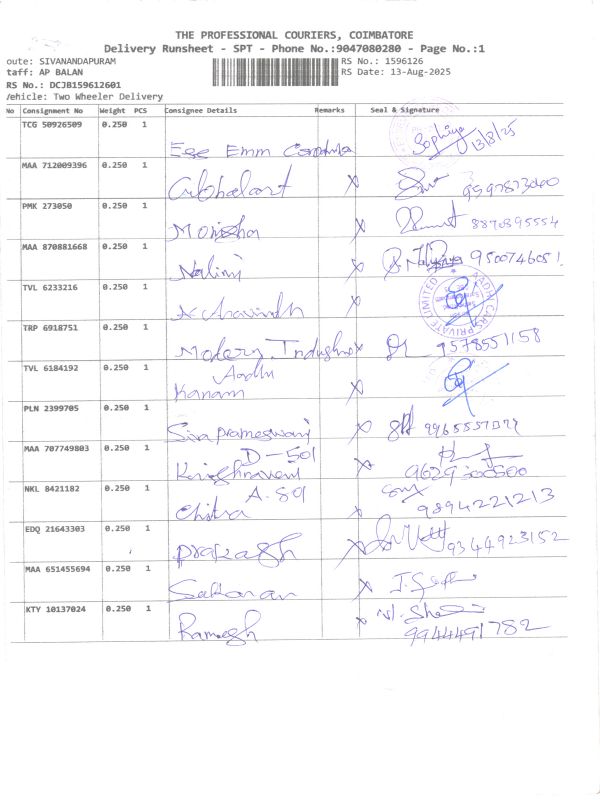 THE PROFESSIONAL COURIERS, COIMBATORE
Delivery Runsheet - SPT - Phone No.:9047080280 - Page No.:1
oute: SIVANANDAPURAM RS No.: 1596126
taff: AP BALAN RS Date: 13-Aug-2025
RS No.: DCJB159612601
Vehicle: Two Wheeler Delivery
No Consignment No Weight PCS Consignee Details Remarks Seal & Signature
TCG 50926509 0.250 1 Emm Sophiya 13/8/25
MAA 712009396 0.250 1
PMK 273050 0.250 1 Monisha 8870395554
MAA 870881668 0.250 1 Nalini 9500746051
TVL 6233216 0.250 1 Aravindh
TRP 6918751 0.250 1 Modern Industries 9578551158
TVL 6184192 0.250 1 Aadhi
Kanam
PLN 2399705 0.250 1 Sivaprameswari
MAA 707749803 0.250 1 D-501
Krishnaveni
NKL 8421182 0.250 1 A-801
Chitra 9894221213
EDQ 21643303 0.250 1 Prakash 9344923152
MAA 651455694 0.250 1
KTY 10137024 0.250 1 Ramesh 9944491782